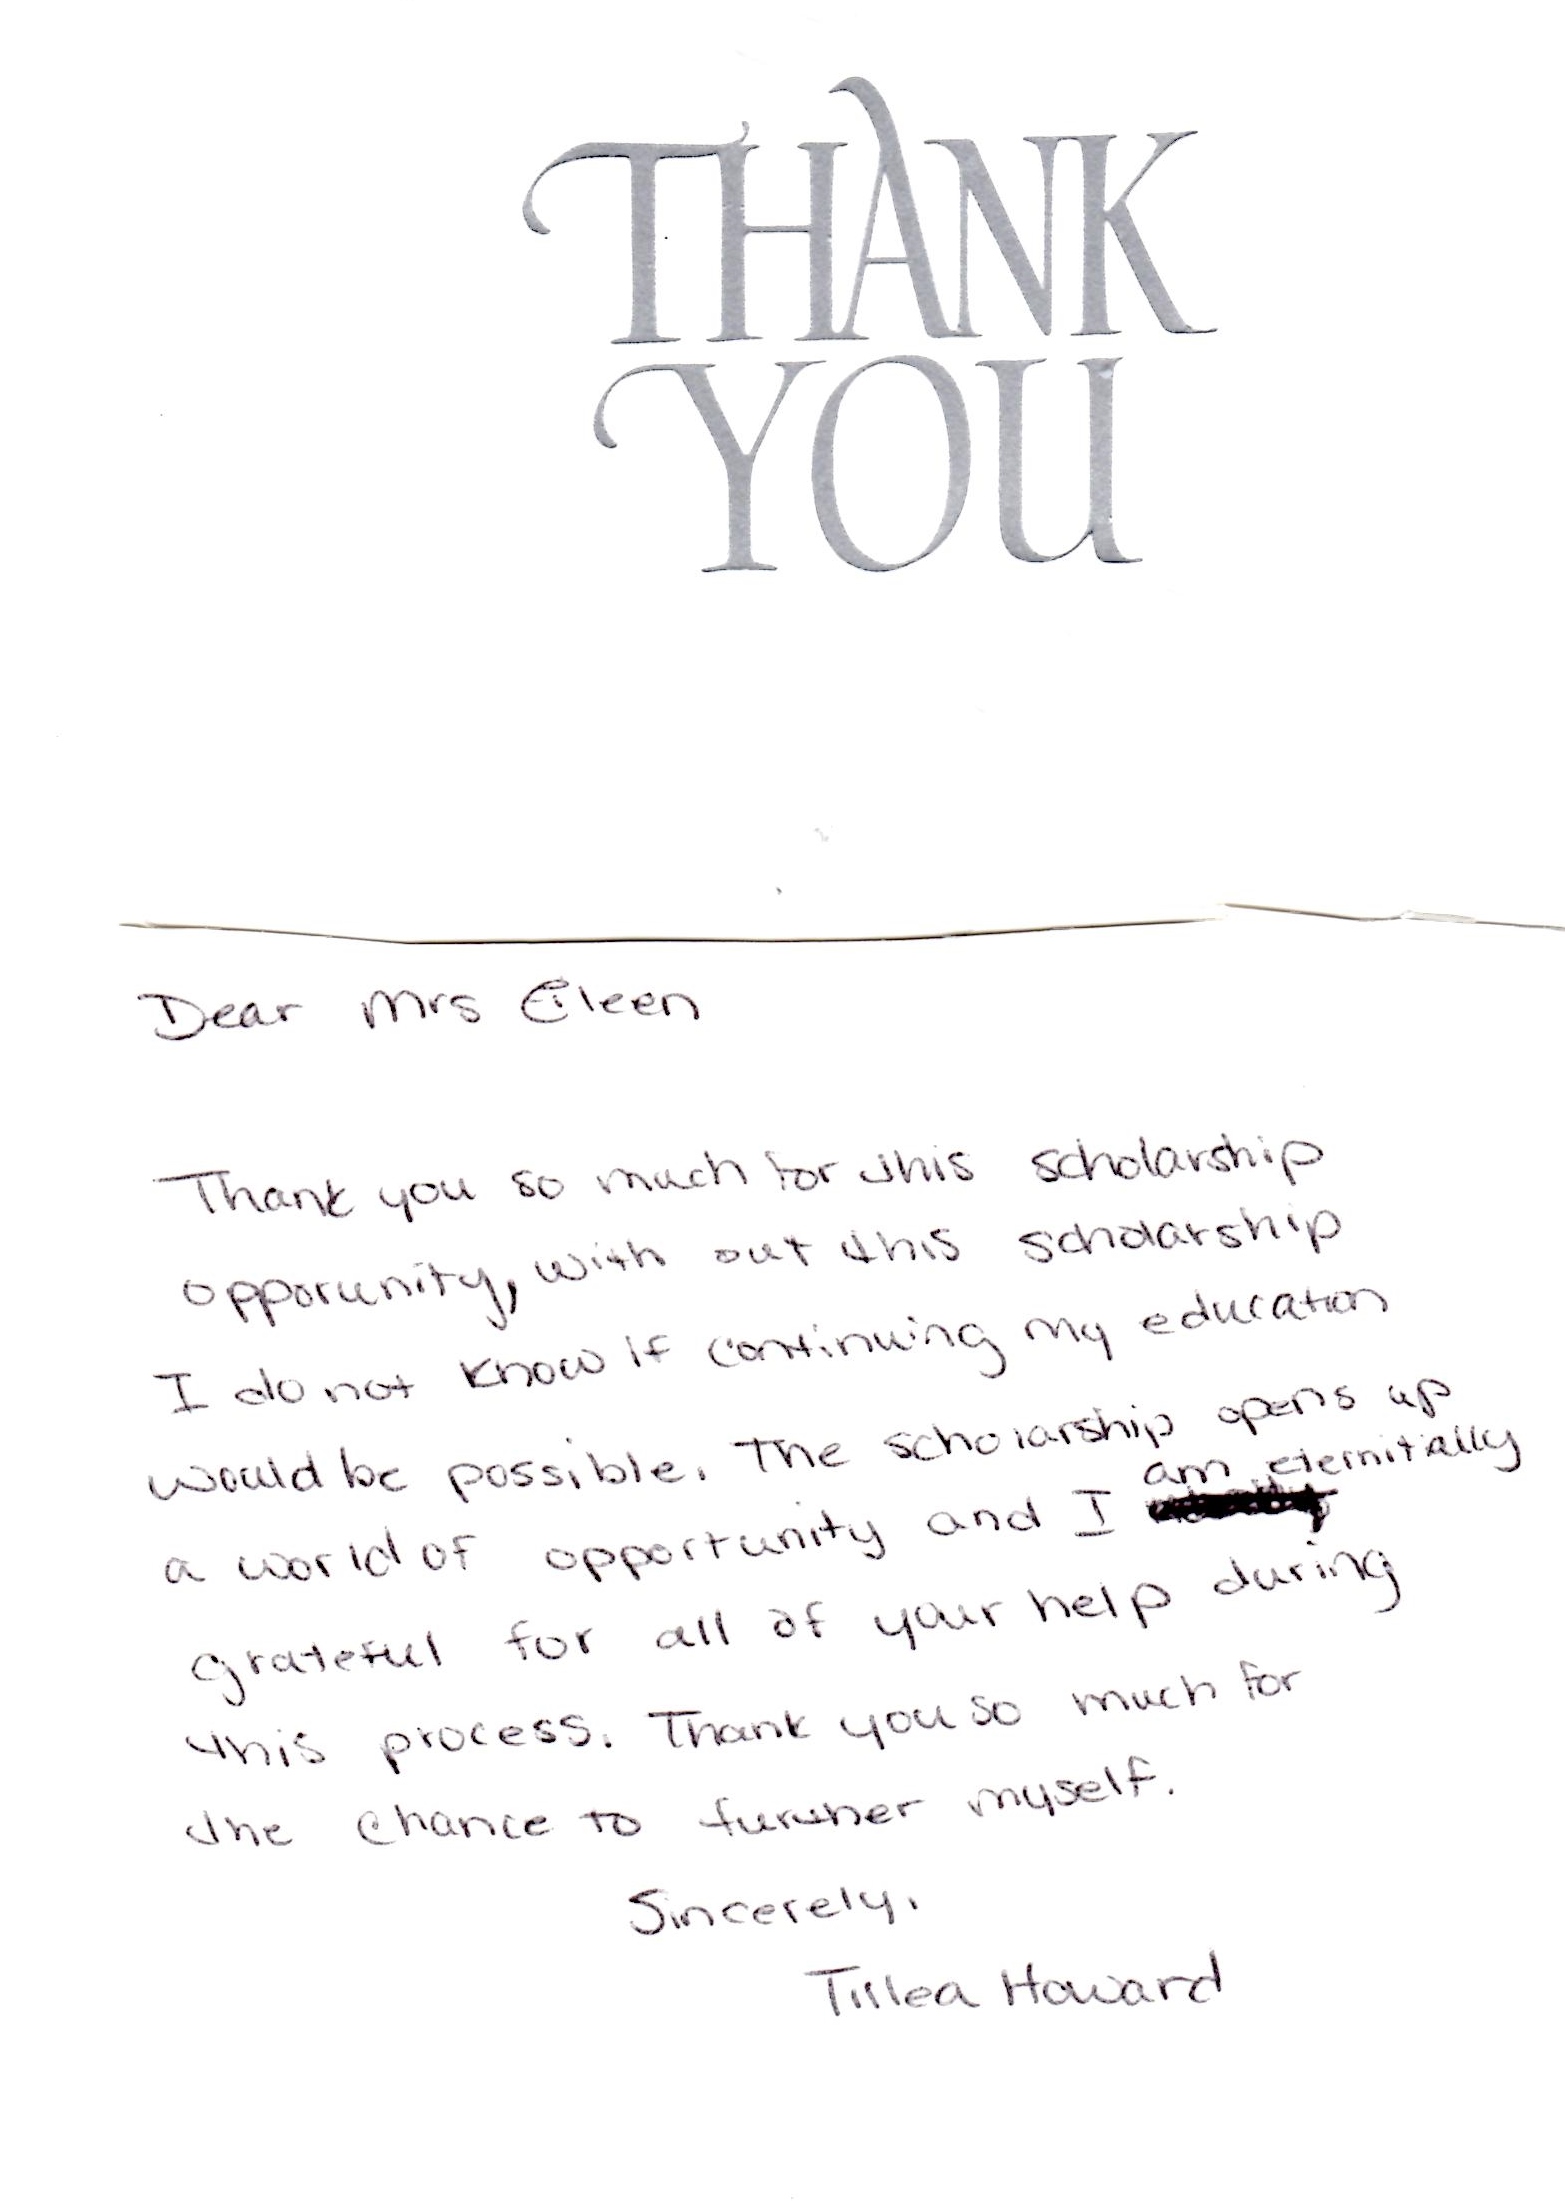 THANK
YOU
Dear Mrs Eileen
Thank you so much for this scholarship
opporunity, with out this scholarship
I do not know if continuing my education
would be possible. The scholarship opens up
a world of opportunity and I am eternitally
grateful for all of your help during
this process. Thank you so much for
the chance to further myself.
Sincerely,
Tillea Howard